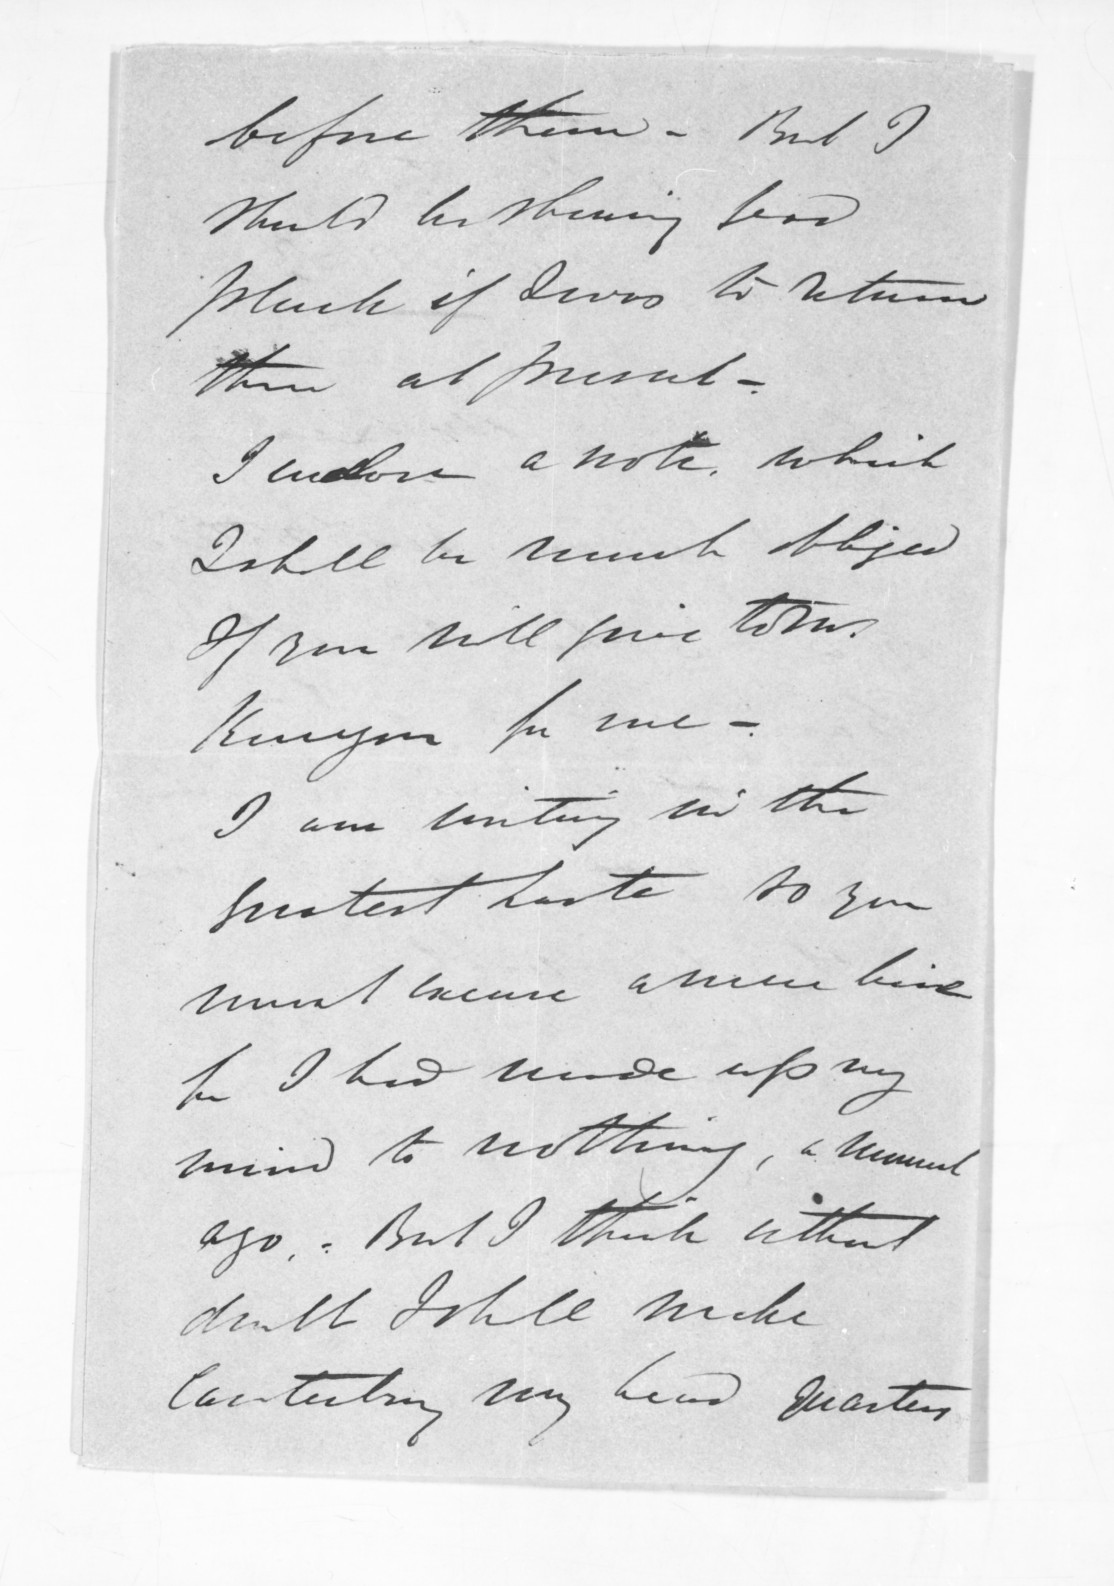 before them - But I
should be shewing bad
pluck if I was to return
there at present -.
I enclose a note, which
I shall be much obliged
If you will give to Mr.
Kenyon for me -.
I am writing in the
greatest haste so you
must excuse a mere line
for I had made up my
mind to nothing, a moment
ago, - But I think without
doubt I shall make
Canterbury my head quarters